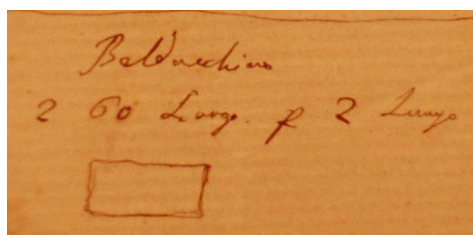 Baldacchino
2 60 Largo. p 2 Lungo